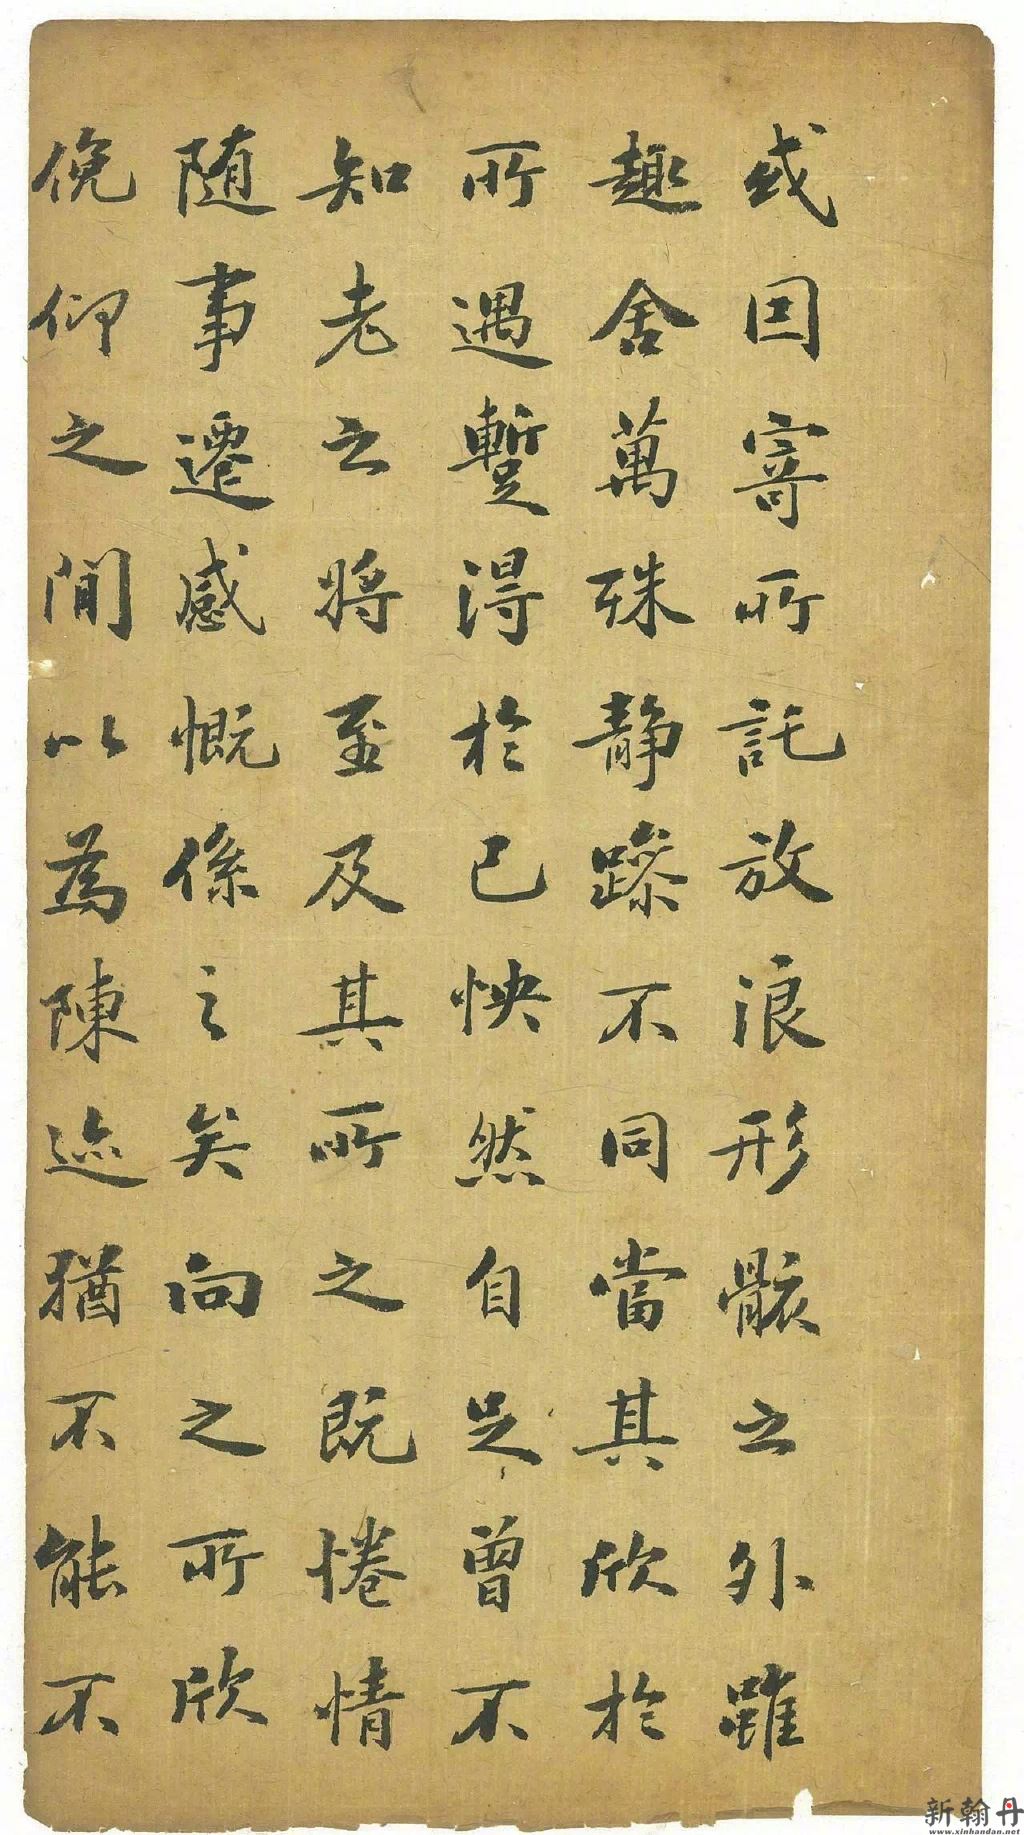 或因寄所託放浪形骸之外雖
趣舍萬殊静躁不同當其欣於
所遇蹔得於己怏然自足曾不
知老之將至及其所之既惓情
随事遷感慨係之矣向之所欣
俛仰之閒以為陳迹猶不能不
新翰丹
www.xinhandan.net